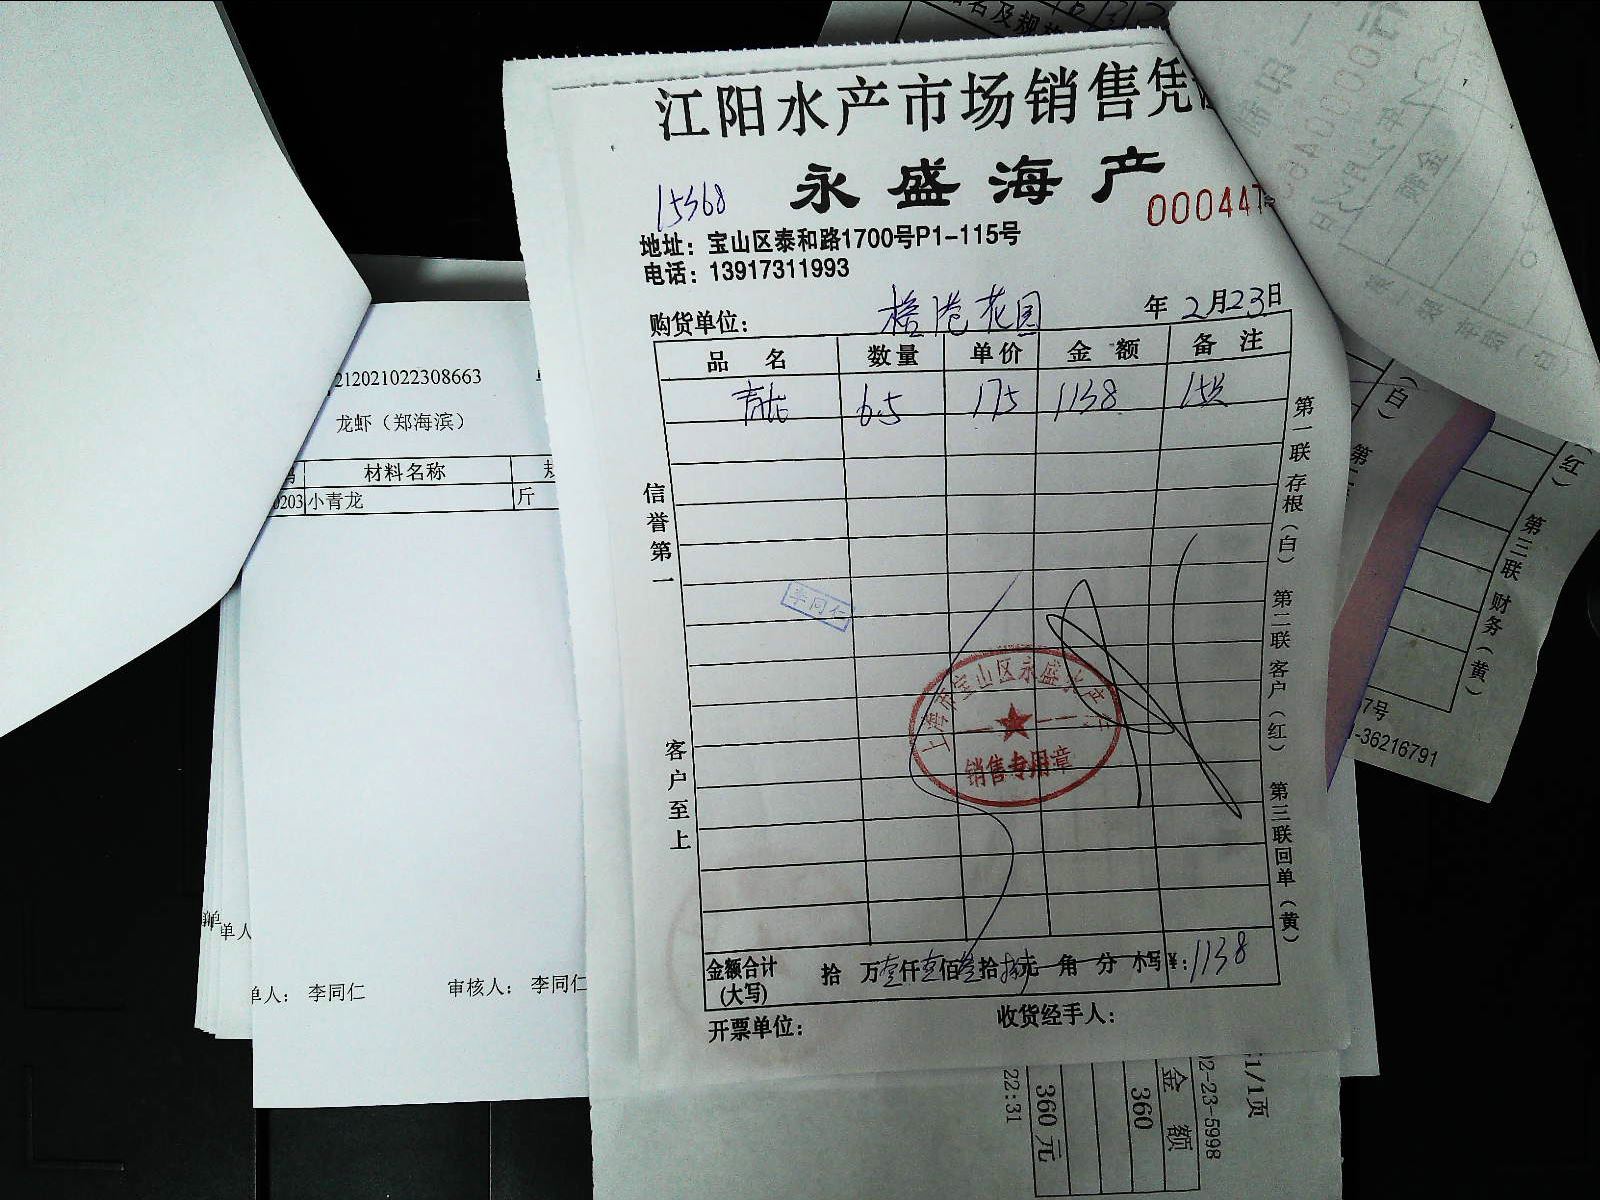 江阳水产市场销售凭
永盛海产
15368
000447
地址：宝山区泰和路1700号P1-115号
电话：13917311993
购货单位：
花园
年2月23日
品名 数量 单价 金额 备注
青龙 6.5 175 1138
信誉第一
客户至上
第一联存根（白） 第二联客户（红） 第三联回单（黄）
李同仁
上海市宝山区永盛水产
销售专用章
金额合计
(大写)
拾 万壹仟壹佰叁拾捌元 角 分 ¥：1138
开票单位：
收货经手人：
212021022308663
龙虾（郑海滨）
材料名称
0203 小青龙 斤
单人
单人： 李同仁
审核人： 李同仁
名及规
（白）
（红）
第三联 财务（黄）
7号
-36216791
1/1页
02-23-5998
金额
360
360元
22:31